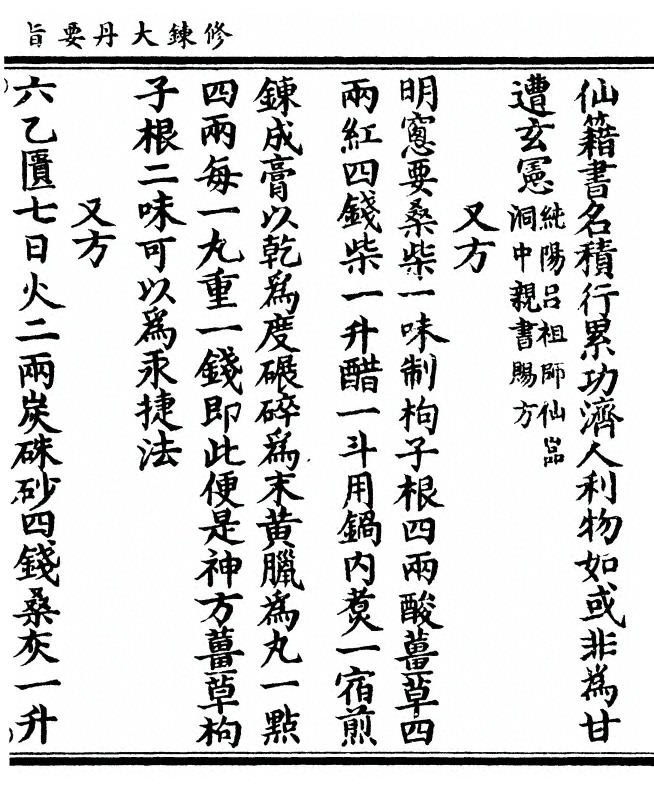 修鍊大丹要旨
仙籍書名積行累功濟人利物如或非為甘
遭玄憲
純陽呂祖師仙嵓
洞中親書賜方
又方
明窻要桑柴一味制枸子根四兩酸薑草四
兩紅四錢柴一升醋一斗用鍋内煑一宿煎
鍊成膏以乾為度碾碎為末黄臘為丸一點
四兩每一丸重一錢即此便是神方薑草枸
子根二味可以為汞捷法
又方
六乙匱七日火二兩炭硃砂四錢桑灰一升